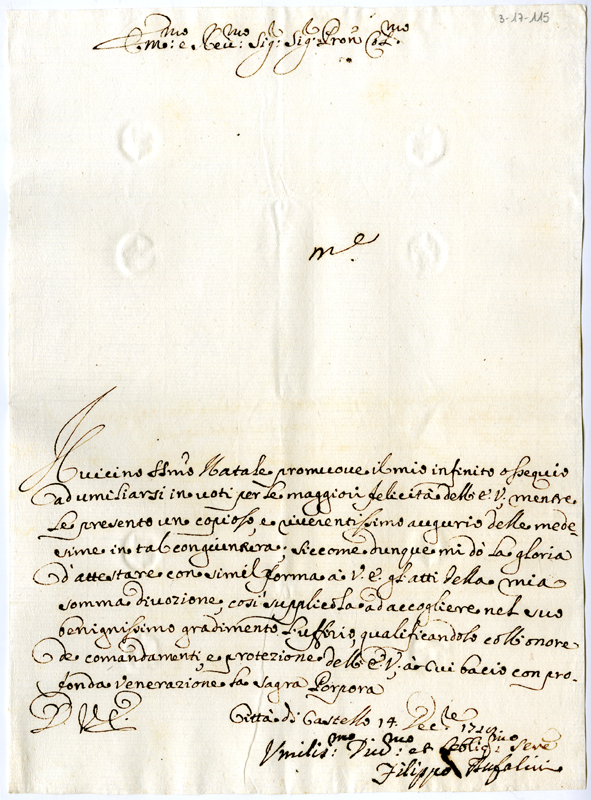 3-17-115
Em:mo e Rev:mo Sig:r Sig:r Pron Col:mo
m:e
Il vicino SS:mo Natale promuove il mio infinito ossequio
ad umiliarsi in voti per le maggiori felicità dell'E.V; mentre
Le presento un copioso, e riverentissimo augurio delle mede-
sime in tal congiuntura; siccome dunque mi dò la gloria
d'attestare con simil forma a V.E. gl'atti della mia
somma divozione, così supplicola ad accogliere nel suo
benignissimo gradimento l'uffizio, qualificandolo coll'onore
de comandamenti, e protezione dell'E.V, a Cui bacio con pro-
fonda venerazione la Sagra Porpora
D.V.E.
Città di Castello 14 Dec:re
Umilis:mo Div:mo et Oblig:mo Serv
Filippo Bufalini